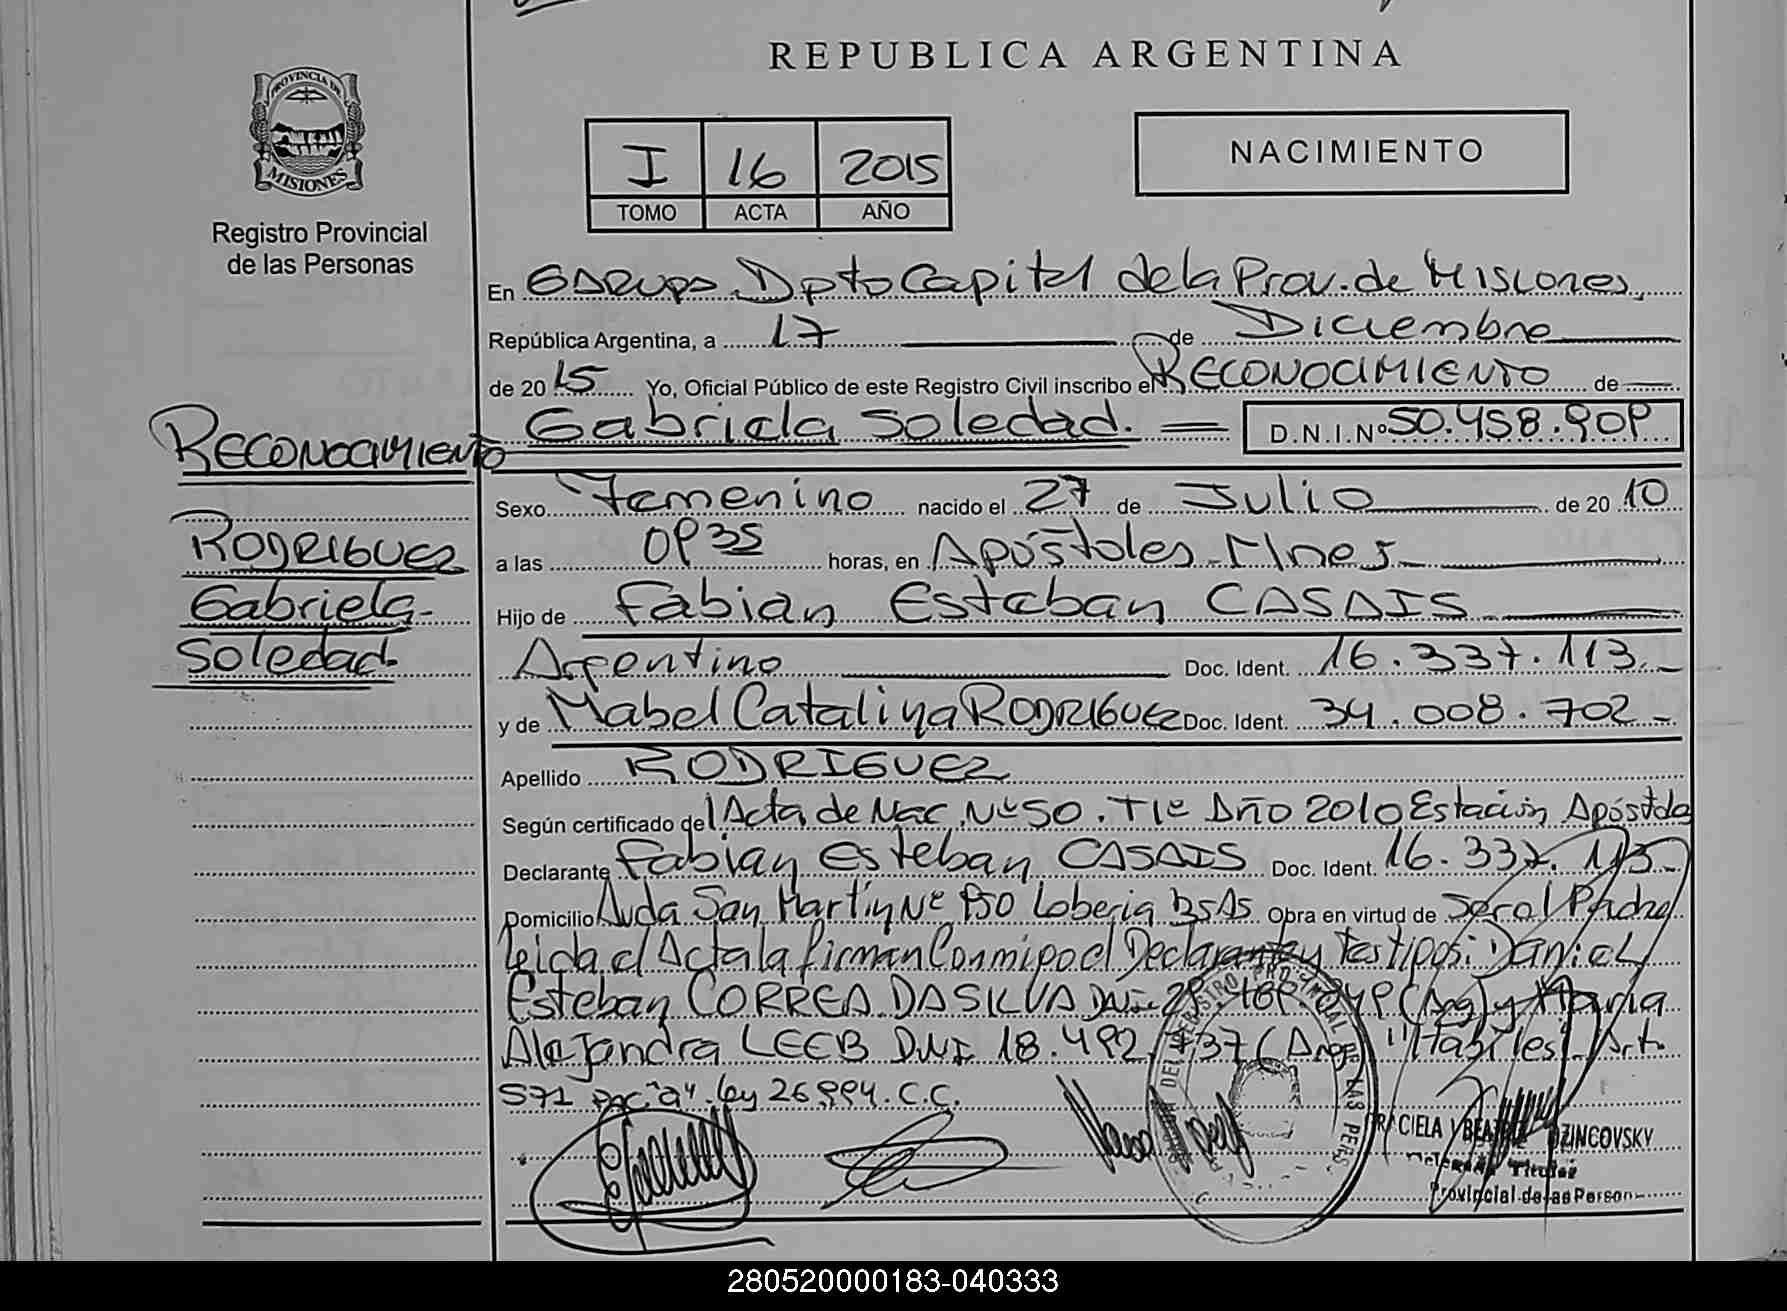 REPUBLICA ARGENTINA
PROVINCIA DE
MISIONES
Registro Provincial
de las Personas
I 16 2015
TOMO ACTA AÑO
NACIMIENTO
En GARUPA Dpto Capital de la Prov. de Misiones,
República Argentina, a 17 de Diciembre
de 2015 Yo, Oficial Público de este Registro Civil inscribo el RECONOCIMIENTO de
Gabriela Soledad. D.N.I.Nº 50.458.909
RECONOCIMIENTO
RODRIGUEZ
Gabriela
Soledad
Sexo Femenino nacido el 27 de Julio de 2010
a las 0935 horas, en Apóstoles - Mnes
Hijo de Fabian Esteban CASAIS
Argentino Doc. Ident. 16.337.113
y de Mabel Catalina RODRIGUEZ Doc. Ident. 34.008.702
Apellido RODRIGUEZ
Según certificado del Acta de Nac. Nº 50. Tº 1º Año 2010 Estación Apóstoles
Declarante Fabian Esteban CASAIS Doc. Ident. 16.337.113
Domicilio Avda San Martin Nº 950 Loberia BsAs Obra en virtud de Ser el Padre
leida el Acta la firman Conmigo el Declarante y Testigos: Daniel
Esteban CORREA DA SILVA DNI (Arg) y Maria
Alejandra LEEB DNI 18.492.437 (Arg) "Habiles". Art.
571 Inc "a". ley 26.994. C.C.
GRACIELA BEATRIZ OZINCOVSKY
Delegada Titular
Provincial de las Person
280520000183-040333